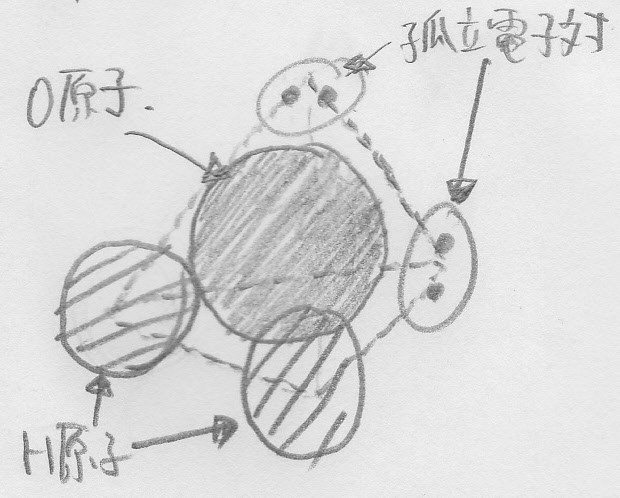 孤立電子対
O原子.
H原子